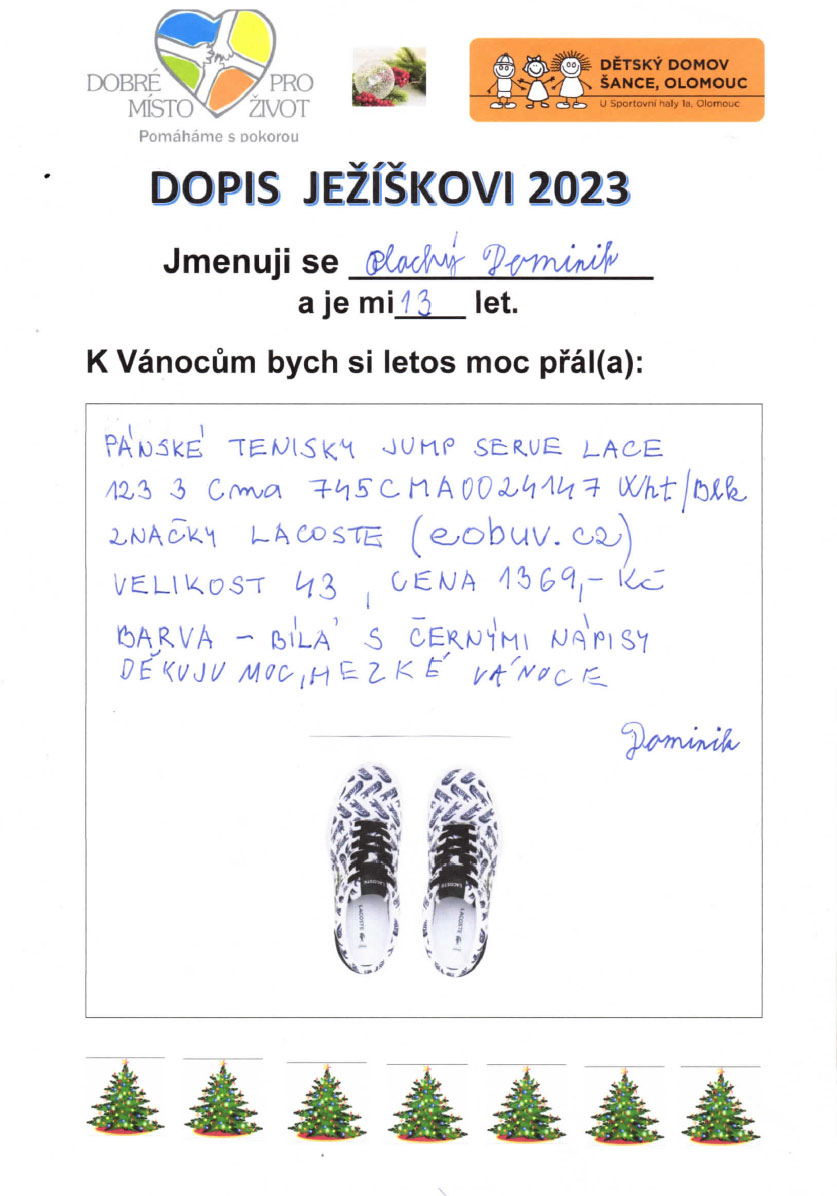 DOBRÉ PRO
MÍSTO ŽIVOT
Pomáháme s pokorou
DĚTSKÝ DOMOV
ŠANCE, OLOMOUC
U Sportovní haly 1a, Olomouc
DOPIS JEŽÍŠKOVI 2023
Jmenuji se Plachý Dominik
a je mi 13 let.
K Vánocům bych si letos moc přál(a):
PÁNSKÉ TENISKY JUMP SERVE LACE
123 3 Cma 745CMA0024147 Wht/Blk
ZNAČKY LACOSTE (eobuv.cz)
VELIKOST 43, CENA 1369,- Kč
BARVA - BÍLÁ S ČERNÝMI NÁPISY
DĚKUJU MOC, HEZKÉ VÁNOCE
Dominik
LACOSTE LACOSTE